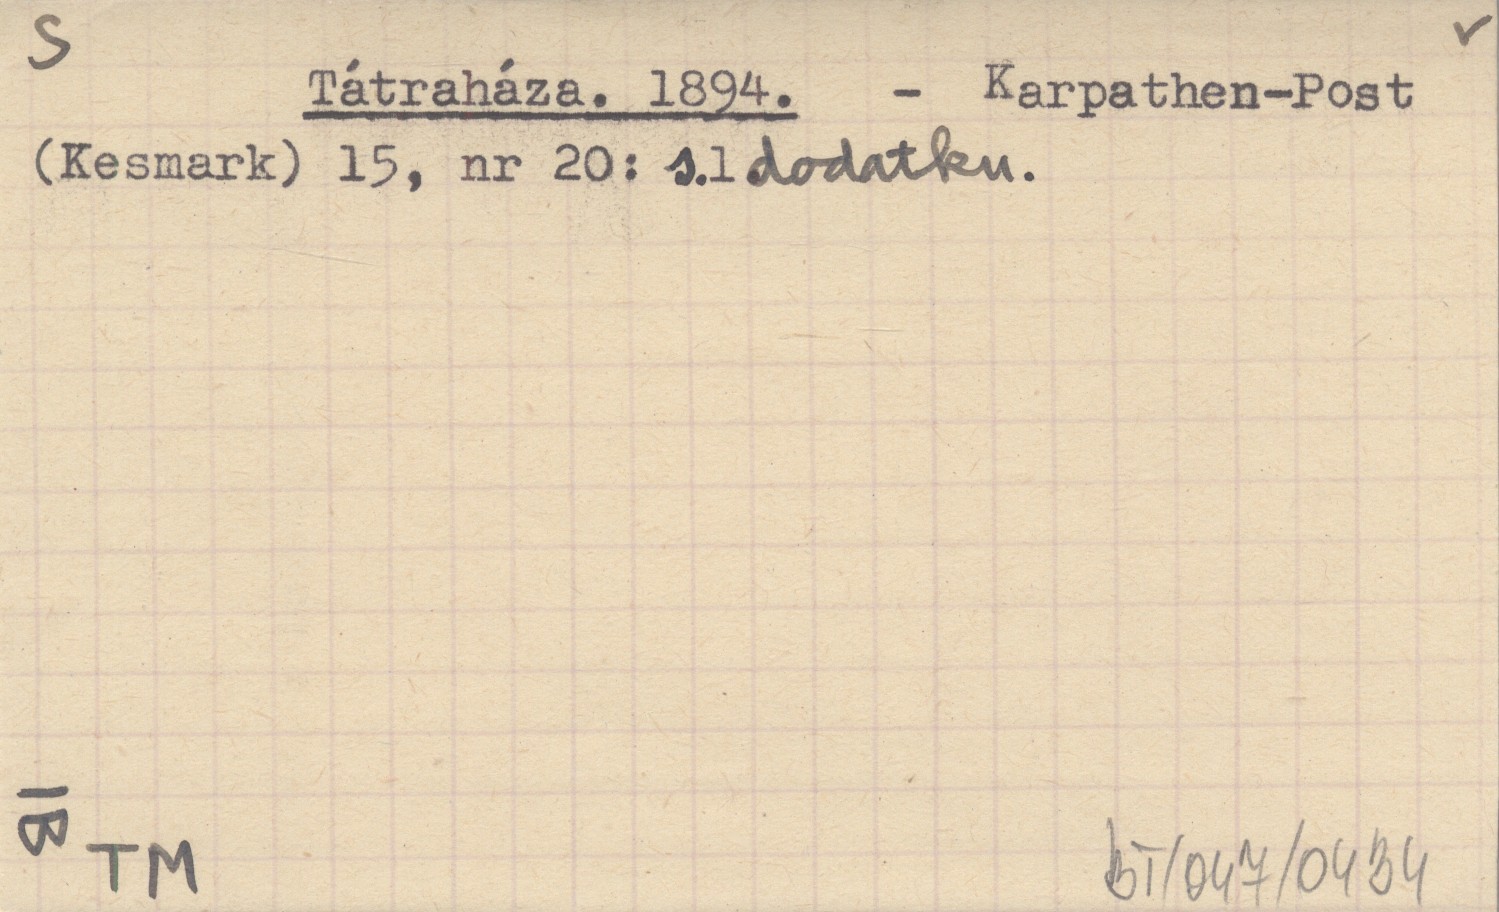 S ✓
Tátraháza. 1894. - Karpathen-Post
(Kesmark) 15, nr 20: s.1 dodatku.
IB
TM
BT/047/0434